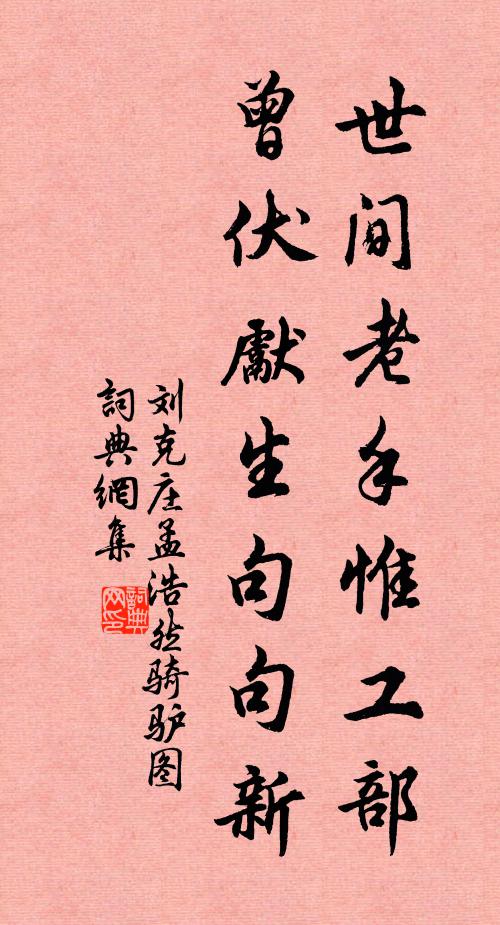 世间老手惟工部
曾伏獻生句句新
刘克庄孟浩然骑驴图
詞典網集
詞典网印